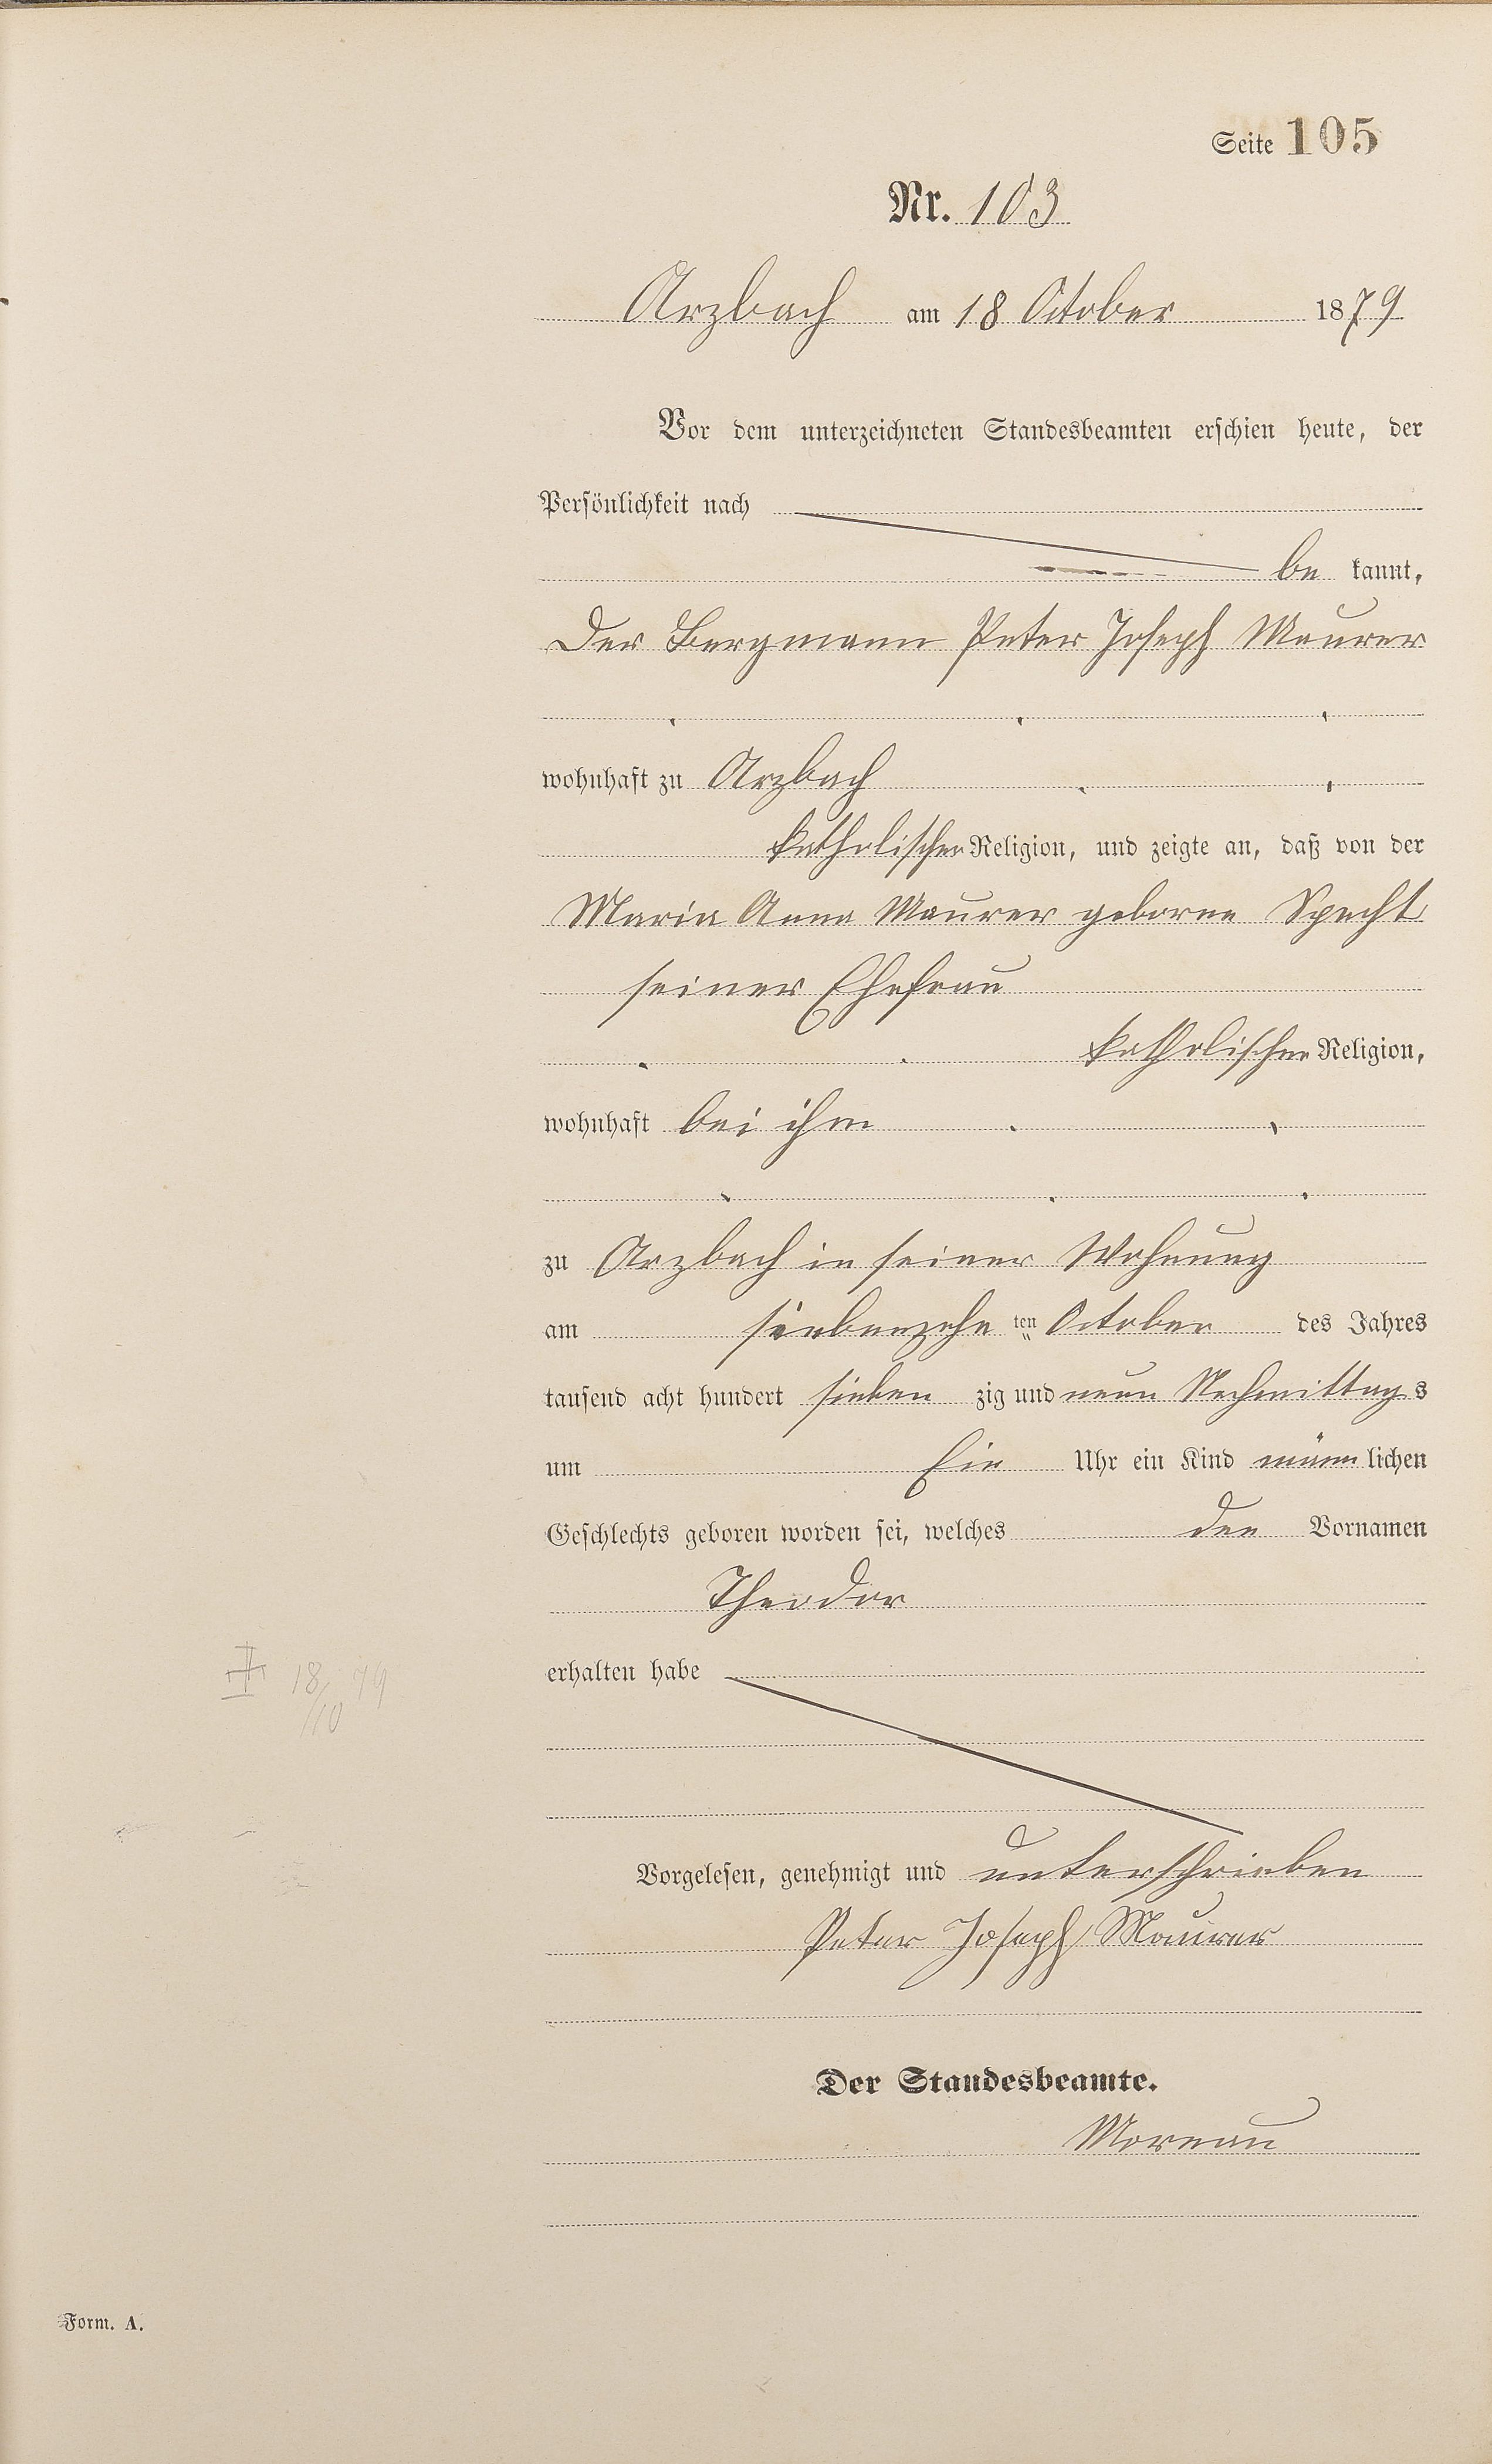 Seite 105
Nr. 103
Arzbach am 18 October 1879
Vor dem unterzeichneten Standesbeamten erschien heute, der
Persönlichkeit nach
be kannt,
Der Bergmann Peter Joseph Maurer
wohnhaft zu Arzbach
katholischer Religion, und zeigte an, daß von der
Maria Anna Maurer geborne Specht
seiner Ehefrau
katholischer Religion,
wohnhaft bei ihm
zu Arzbach in seiner Wohnung
am siebenzehn ten October des Jahres
tausend acht hundert sieben zig und neun Nachmittags
um Ein Uhr ein Kind männlichen
Geschlechts geboren worden sei, welches den Vornamen
Theodor
erhalten habe
18/10 79
Vorgelesen, genehmigt und unterschrieben
Peter Joseph Maurer
Der Standesbeamte.
Moreau
Form. A.